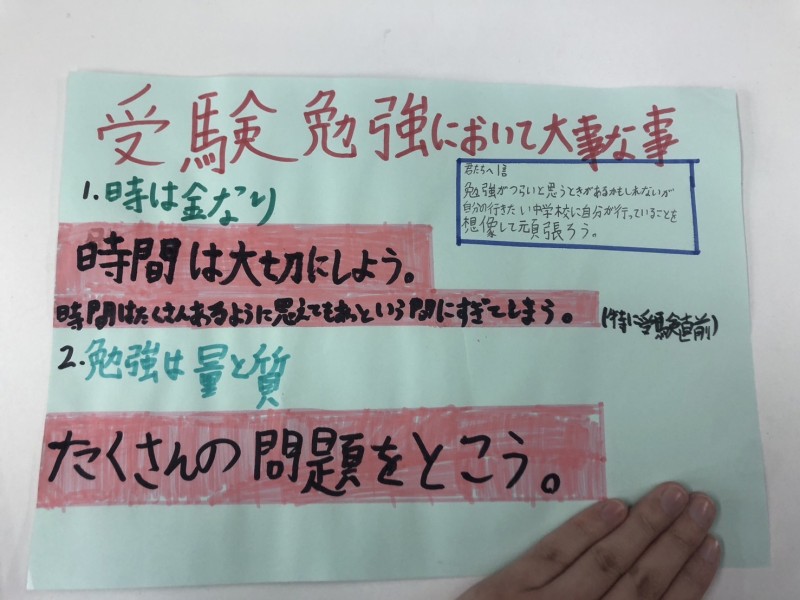 受験勉強において大事な事
君たちへ
勉強がつらいと思うときがあるかもしれないが
自分の行きたい中学校に自分が行っていることを
想像して頑張ろう。
1.時は金なり
時間は大切にしよう。
時間はたくさんあるように思えてもあっという間にすぎてしまう。(特に受験直前)
2.勉強は量と質
たくさんの問題をとこう。